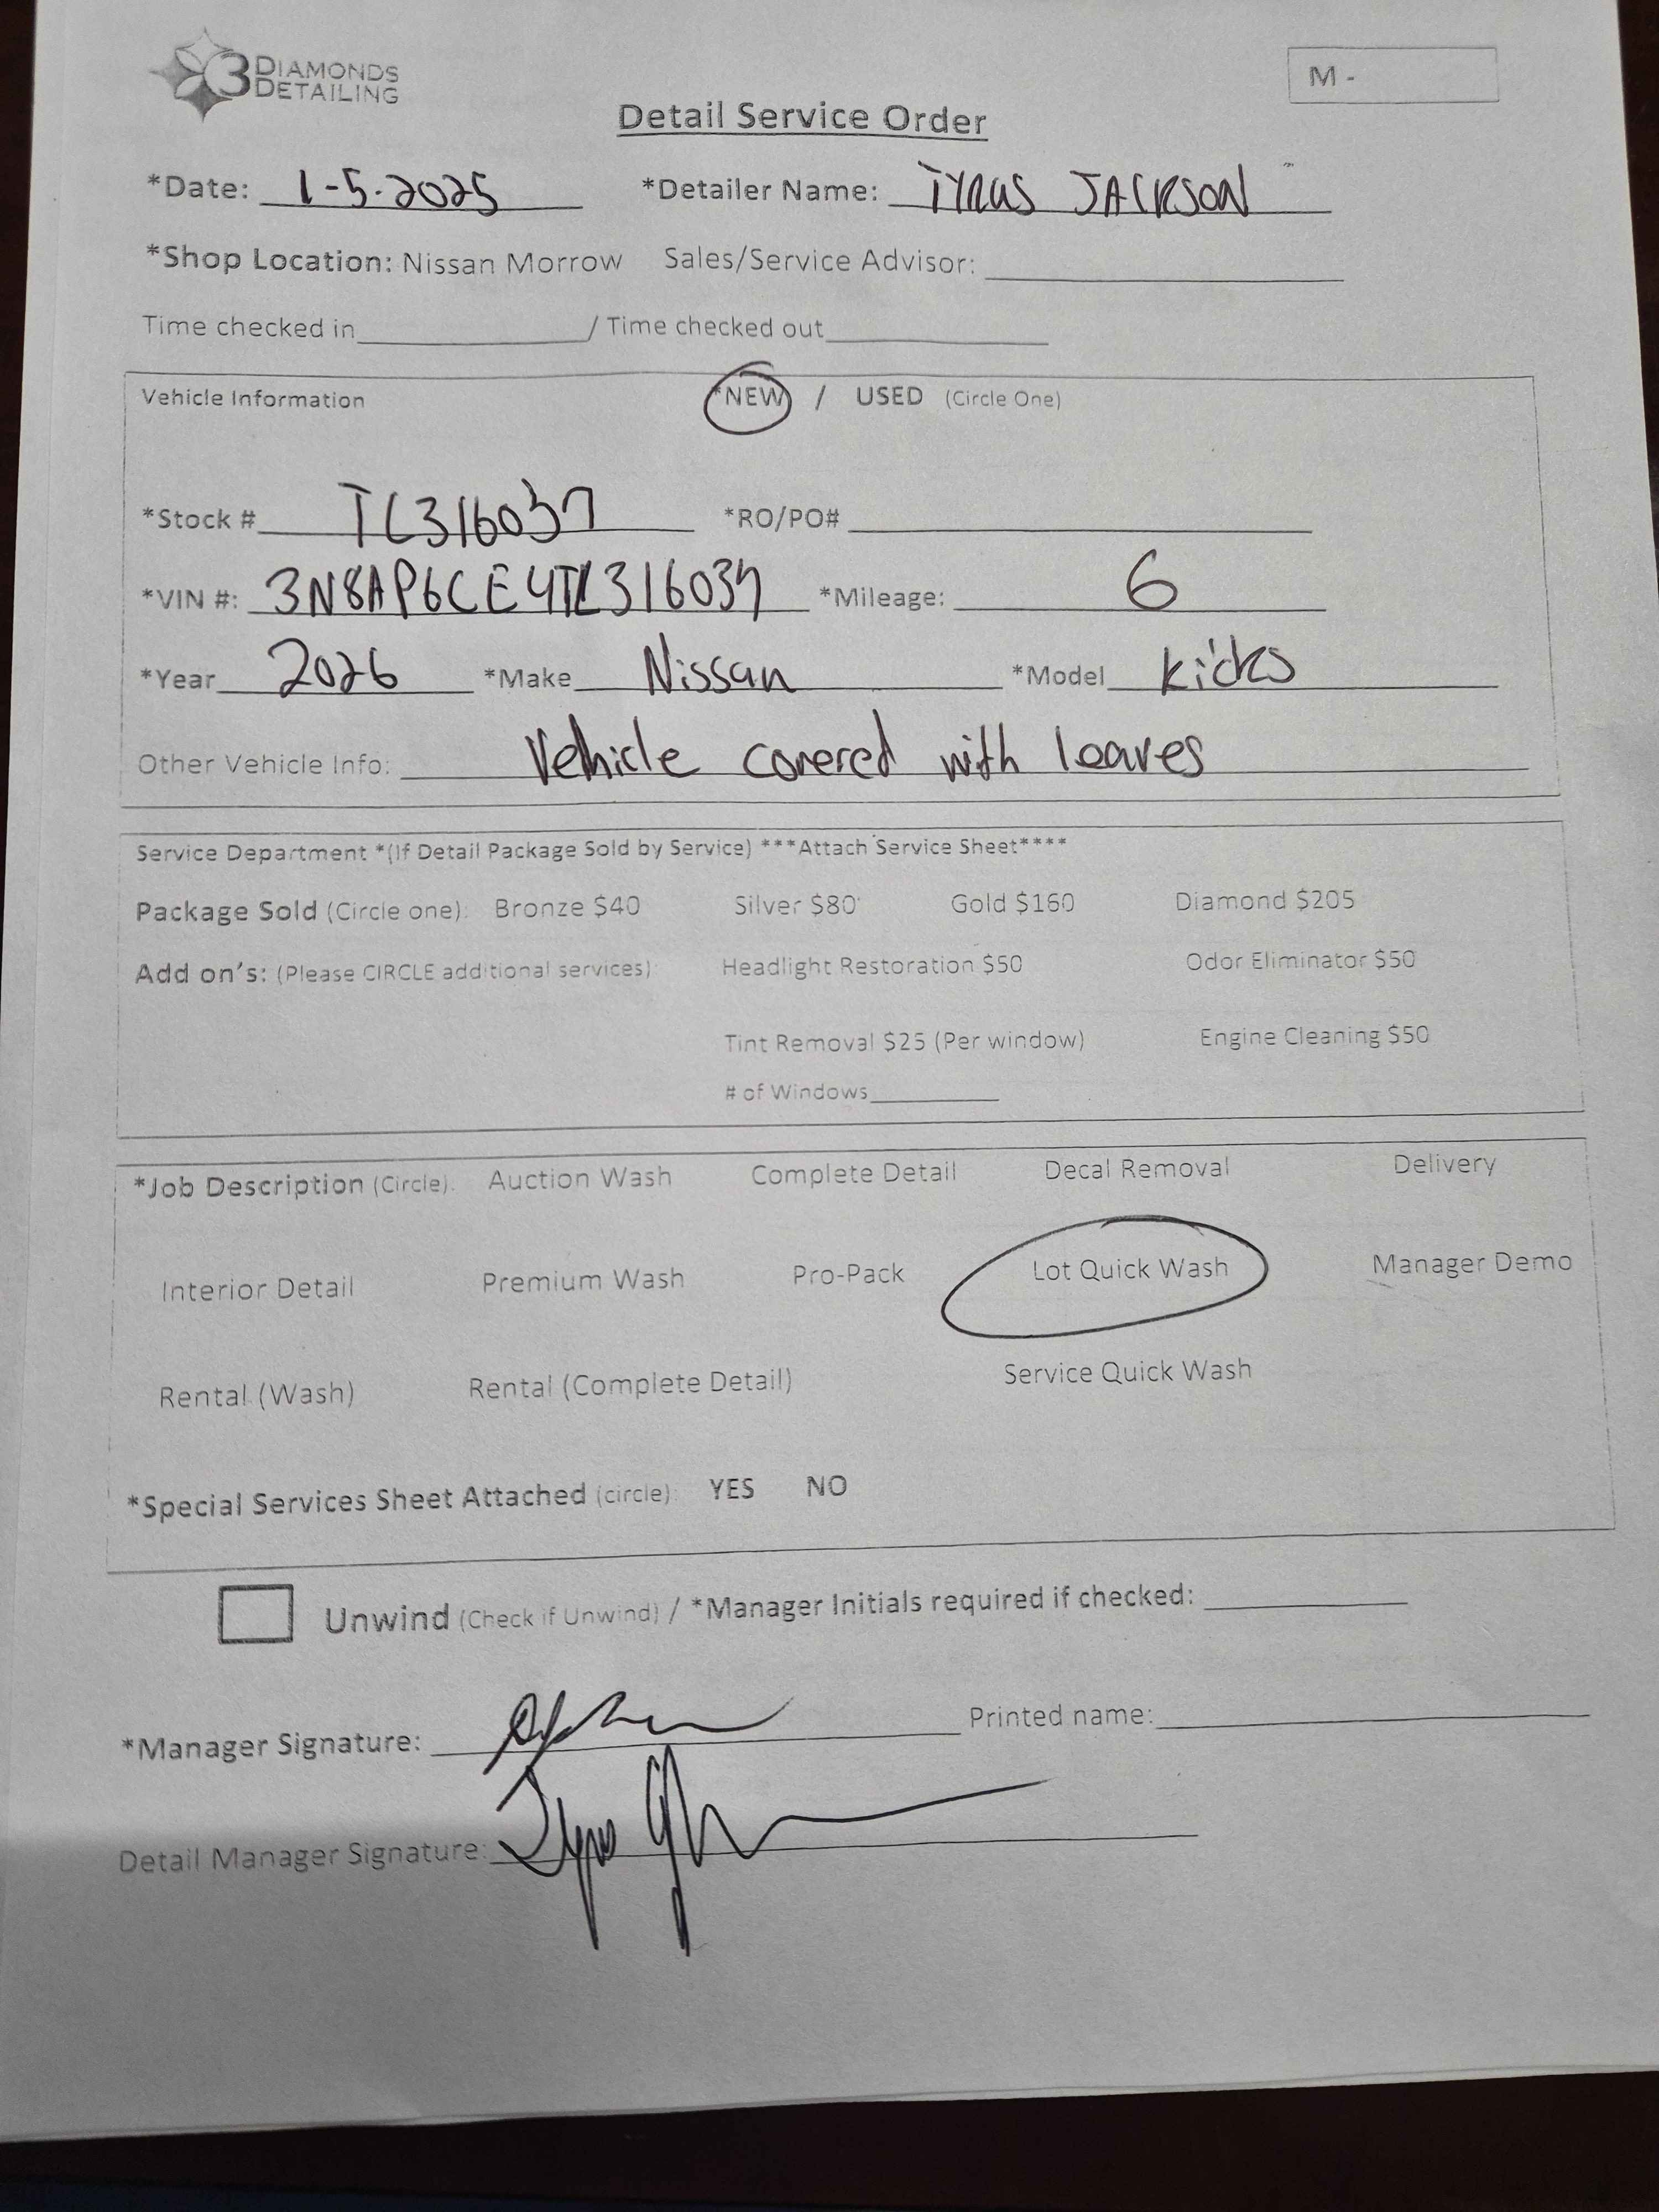 3 DIAMONDS DETAILING
M -
Detail Service Order
*Date: 1-5-2025 *Detailer Name: TYRUS JACKSON
*Shop Location: Nissan Morrow Sales/Service Advisor:
Time checked in / Time checked out
Vehicle Information *NEW / USED (Circle One)
*Stock # TL316037 *RO/PO#
*VIN #: 3N8AP6CE4TL316037 *Mileage: 6
*Year 2026 *Make Nissan *Model Kicks
Other Vehicle Info: Vehicle covered with leaves
Service Department *(If Detail Package Sold by Service) ***Attach Service Sheet****
Package Sold (Circle one): Bronze $40 Silver $80 Gold $160 Diamond $205
Add on's: (Please CIRCLE additional services): Headlight Restoration $50 Odor Eliminator $50
Tint Removal $25 (Per window) Engine Cleaning $50
# of Windows
*Job Description (Circle). Auction Wash Complete Detail Decal Removal Delivery
Interior Detail Premium Wash Pro-Pack Lot Quick Wash Manager Demo
Rental (Wash) Rental (Complete Detail) Service Quick Wash
*Special Services Sheet Attached (circle): YES NO
Unwind (Check if Unwind) / *Manager Initials required if checked:
*Manager Signature: Printed name:
Detail Manager Signature: